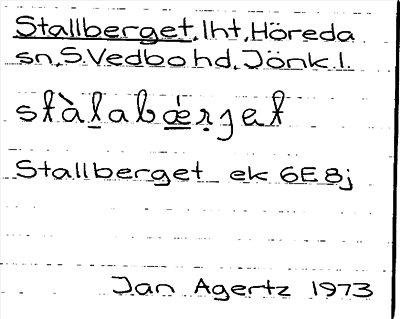 Stallberget, lht, Höreda
sn, S. Vedbo hd, Jönk. l.
stàlabǽrgat
Stallberget ek 6E8j
Jan Agertz 1973